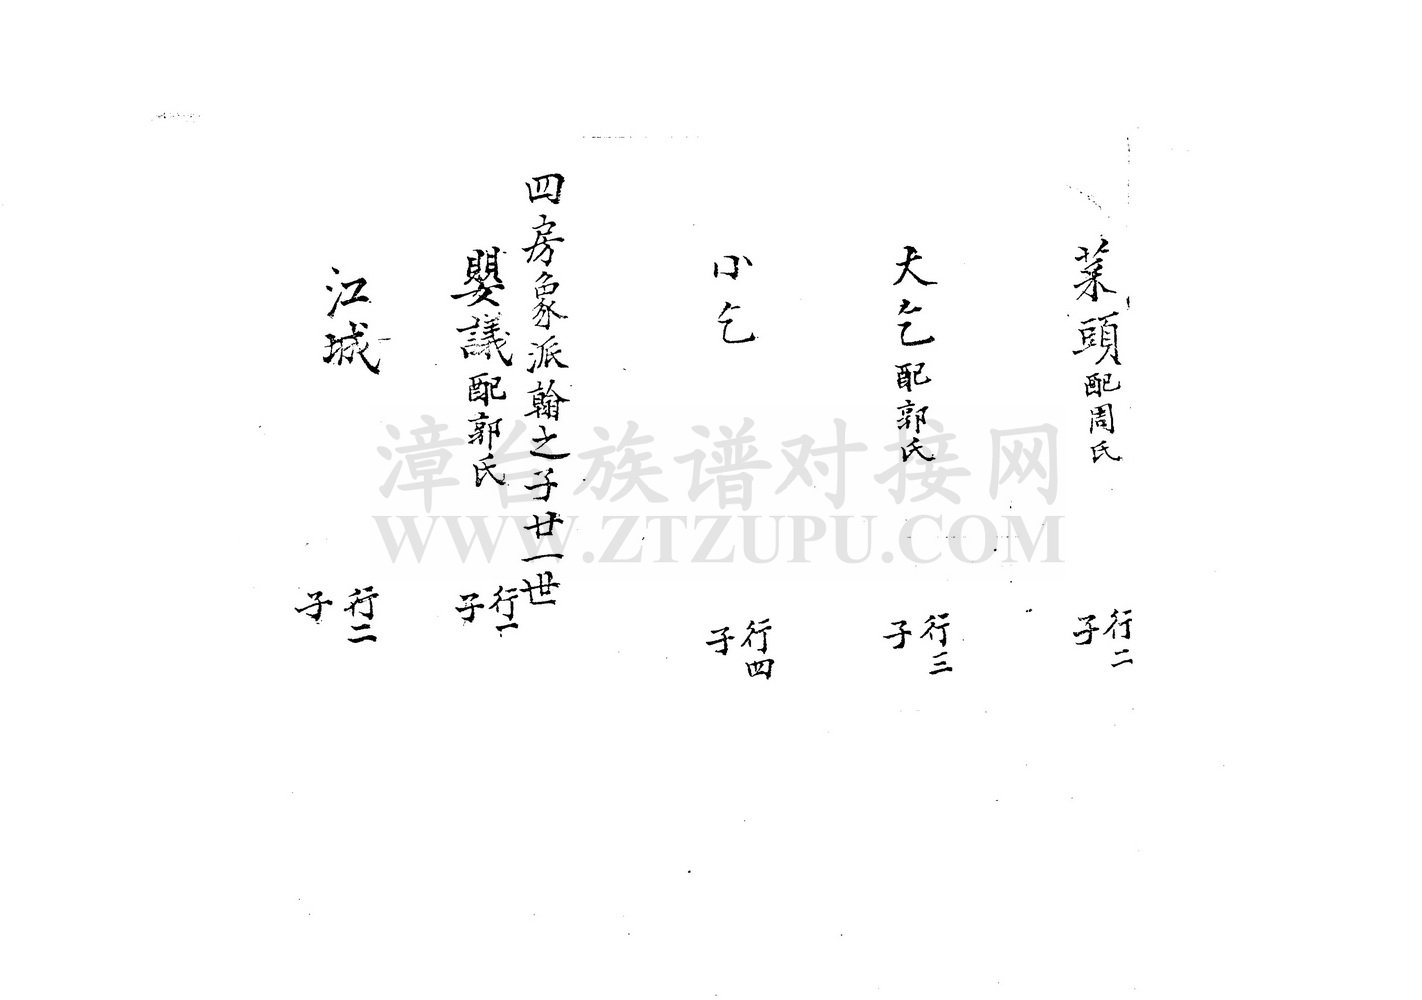 菜頭配周氏
行二
子
大乞配郭氏
行三
子
小乞
行四
子
四房象派翰之子廿一世
嬰議配郭氏
行一
子
江城
行二
子
漳台族谱对接网
WWW.ZTZUPU.COM